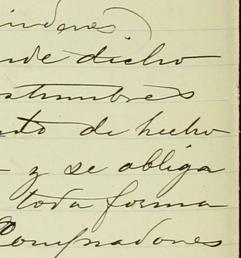 inderes)
nde dicho
stumbres
nto de hecho
y se obliga
toda forma
Compradores